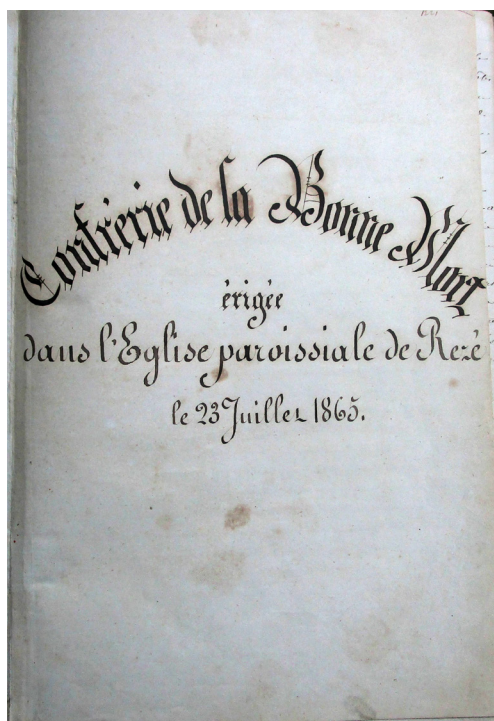 Confrérie de la Bonne Mort
érigée
dans l'Eglise paroissiale de Rezé
le 23 Juillet 1865.